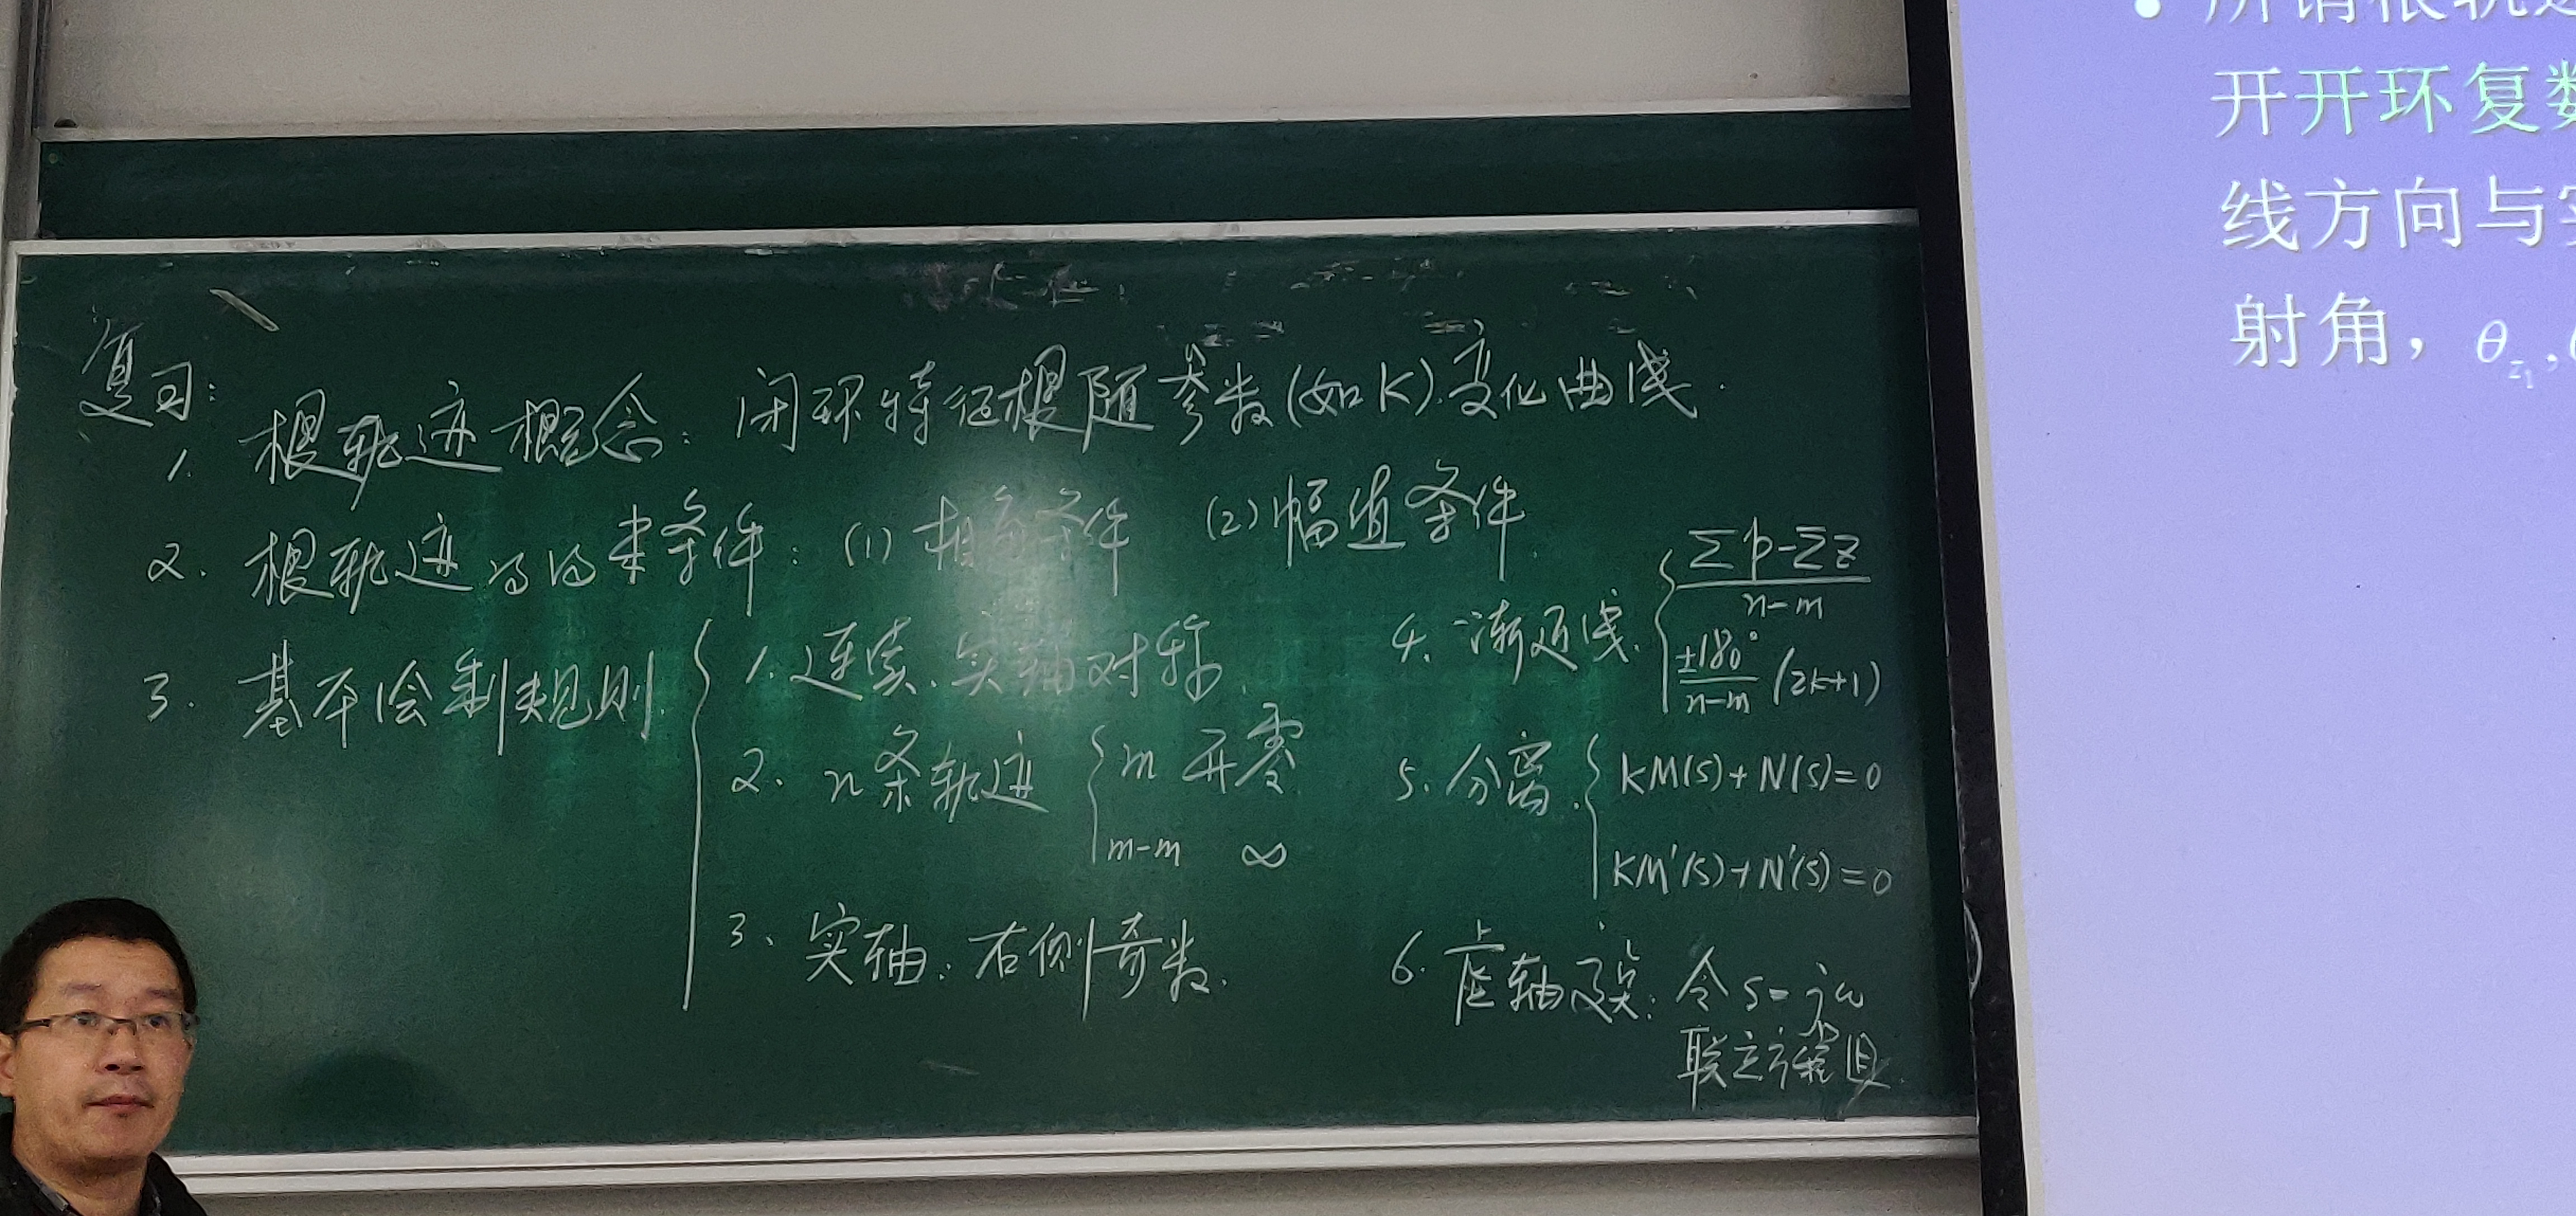 复习:
1. 根轨迹概念: 闭环特征根随参数(如K)变化曲线.
2. 根轨迹的约束条件: (1) 相角条件 (2) 幅值条件.
3. 基本绘制规则
1. 连续、实轴对称.
2. n条轨迹 m 开零
m-m ∞
3、实轴: 右侧奇数.
4. 渐近线. Σp-Σz / n-m
±180° / n-m (2k+1)
5. 分离. KM(s)+N(s)=0
KM'(s)+N'(s)=0
6. 虚轴交点: 令s=jω
联立方程组.
开开环复
线方向与
射角，θz₁,